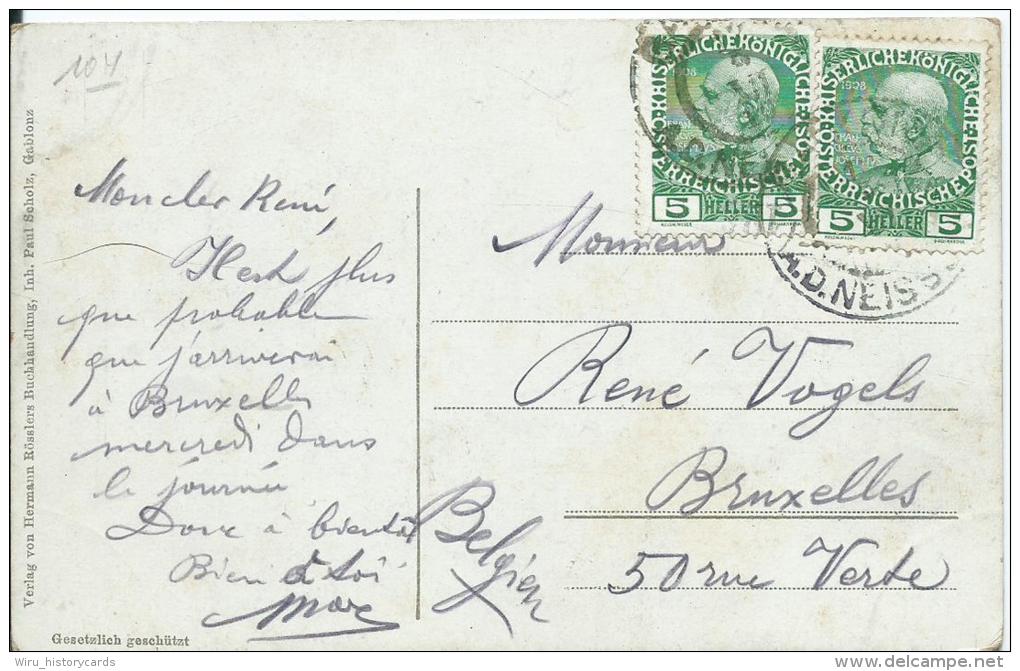 104
Mon cher René,
Il est plus
que probable
que j'arriverai
à Bruxelles
mercredi dans
la journée
Donc à bientôt
Bien à toi
Max
Verlag von Hermann Rösslers Buchhandlung, Inh. Paul Scholz, Gablonz
Gesetzlich geschützt
Monsieur
René Vogels
Bruxelles
50 rue Verte
Belgien
KAISERLICHE KÖNIGLICHE ÖSTERREICHISCHE POST
1908
5 HELLER 5
KAISERLICHE KÖNIGLICHE ÖSTERREICHISCHE POST
1908
5 HELLER 5
A.D.NEISSE
Wiru_historycards
delcampe.net